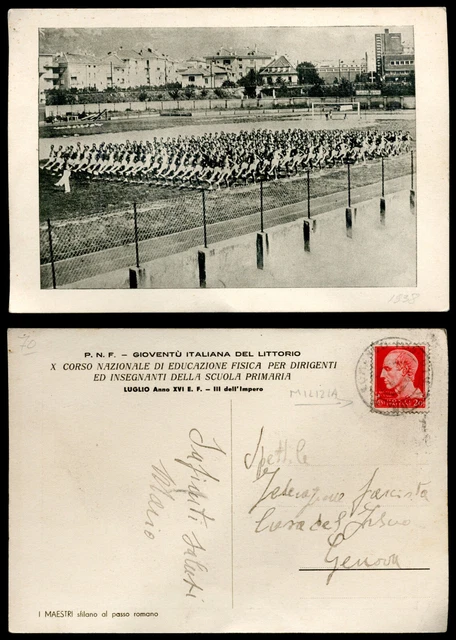 1938
P. N. F. – GIOVENTÙ ITALIANA DEL LITTORIO
X CORSO NAZIONALE DI EDUCAZIONE FISICA PER DIRIGENTI
ED INSEGNANTI DELLA SCUOLA PRIMARIA
LUGLIO Anno XVI E. F. – III dell'Impero
MILIZIA
Saluti
Mario
Spett.le
Federazione fascista
Genova
I MAESTRI sfilano al passo romano